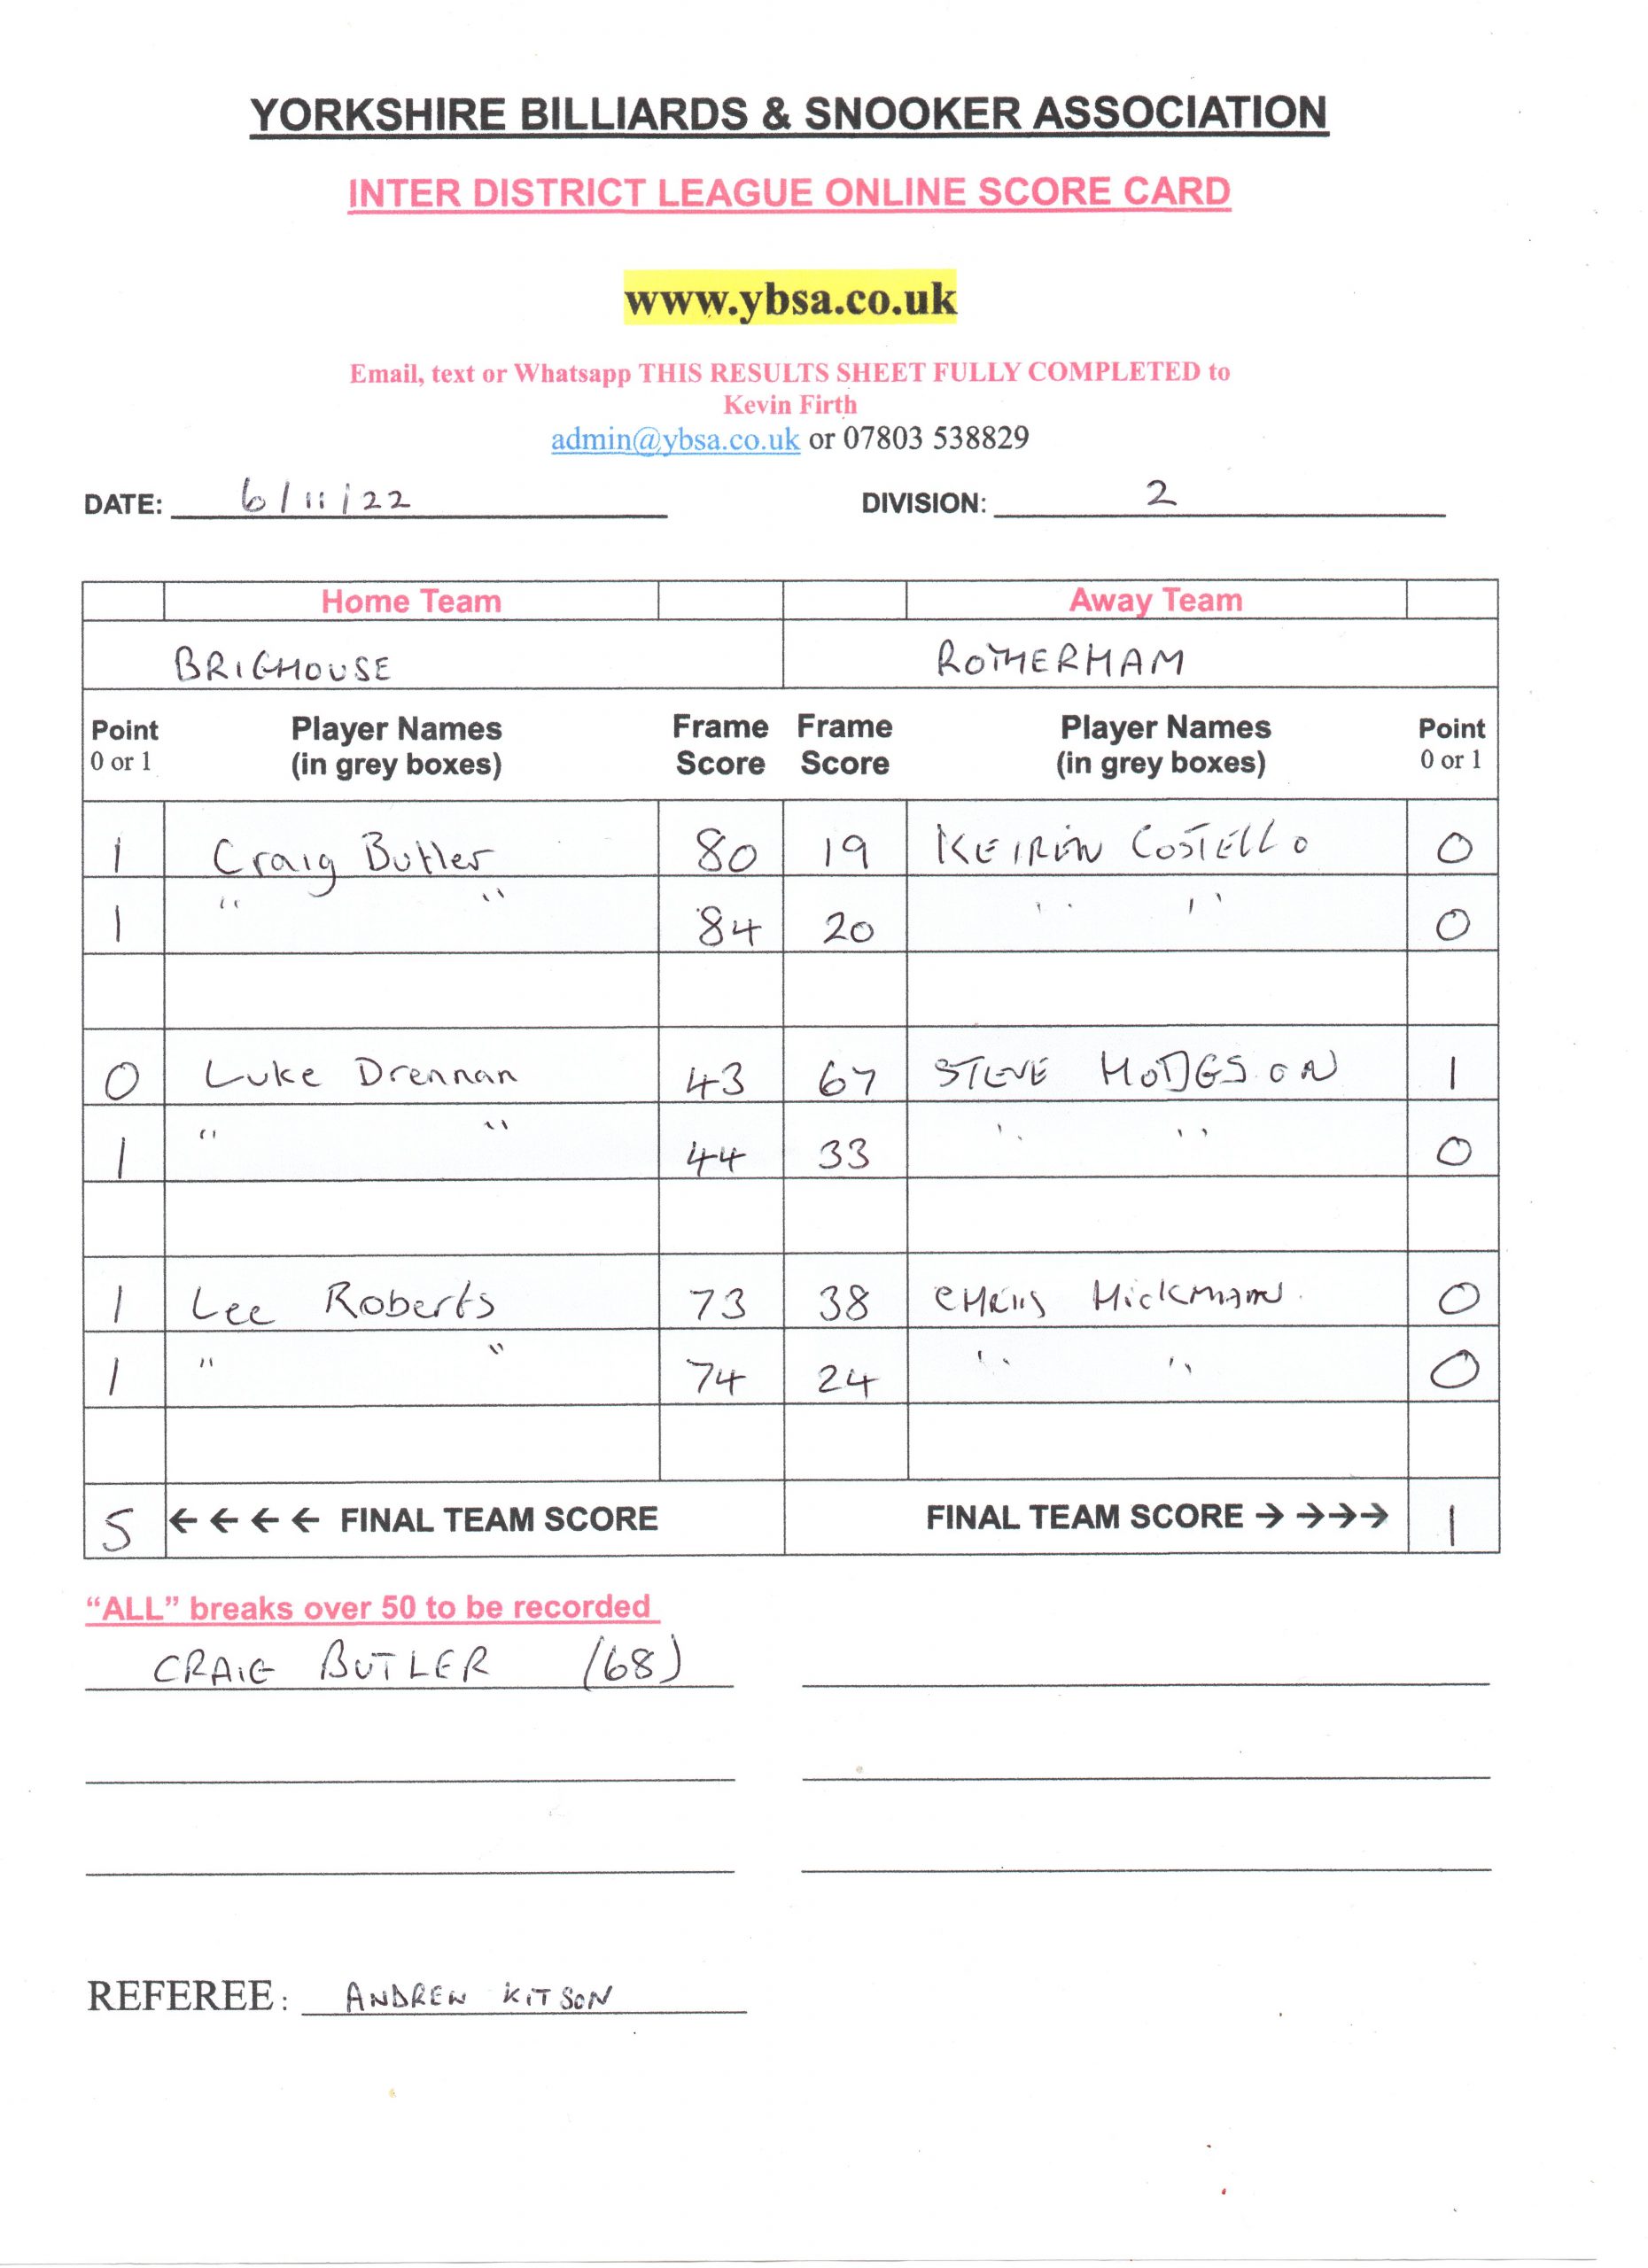 YORKSHIRE BILLIARDS & SNOOKER ASSOCIATION
INTER DISTRICT LEAGUE ONLINE SCORE CARD
www.ybsa.co.uk
Email, text or Whatsapp THIS RESULTS SHEET FULLY COMPLETED to
Kevin Firth
admin@ybsa.co.uk or 07803 538829
DATE: 6/11/22 DIVISION: 2
Home Team Away Team
BRIGHOUSE ROTHERHAM
Point Player Names Frame Frame Player Names Point
0 or 1 (in grey boxes) Score Score (in grey boxes) 0 or 1
1 Craig Butler 80 19 KEIRON COSTELLO 0
1 " " 84 20 " " 0
0 Luke Drennan 43 67 STEVE HODGSON 1
1 " " 44 33 " " 0
1 Lee Roberts 73 38 CHRIS HICKMAN 0
1 " " 74 24 " " 0
5 ← ← ← ← FINAL TEAM SCORE FINAL TEAM SCORE → →→→ 1
“ALL” breaks over 50 to be recorded
CRAIG BUTLER (68)
REFEREE: ANDREW KITSON